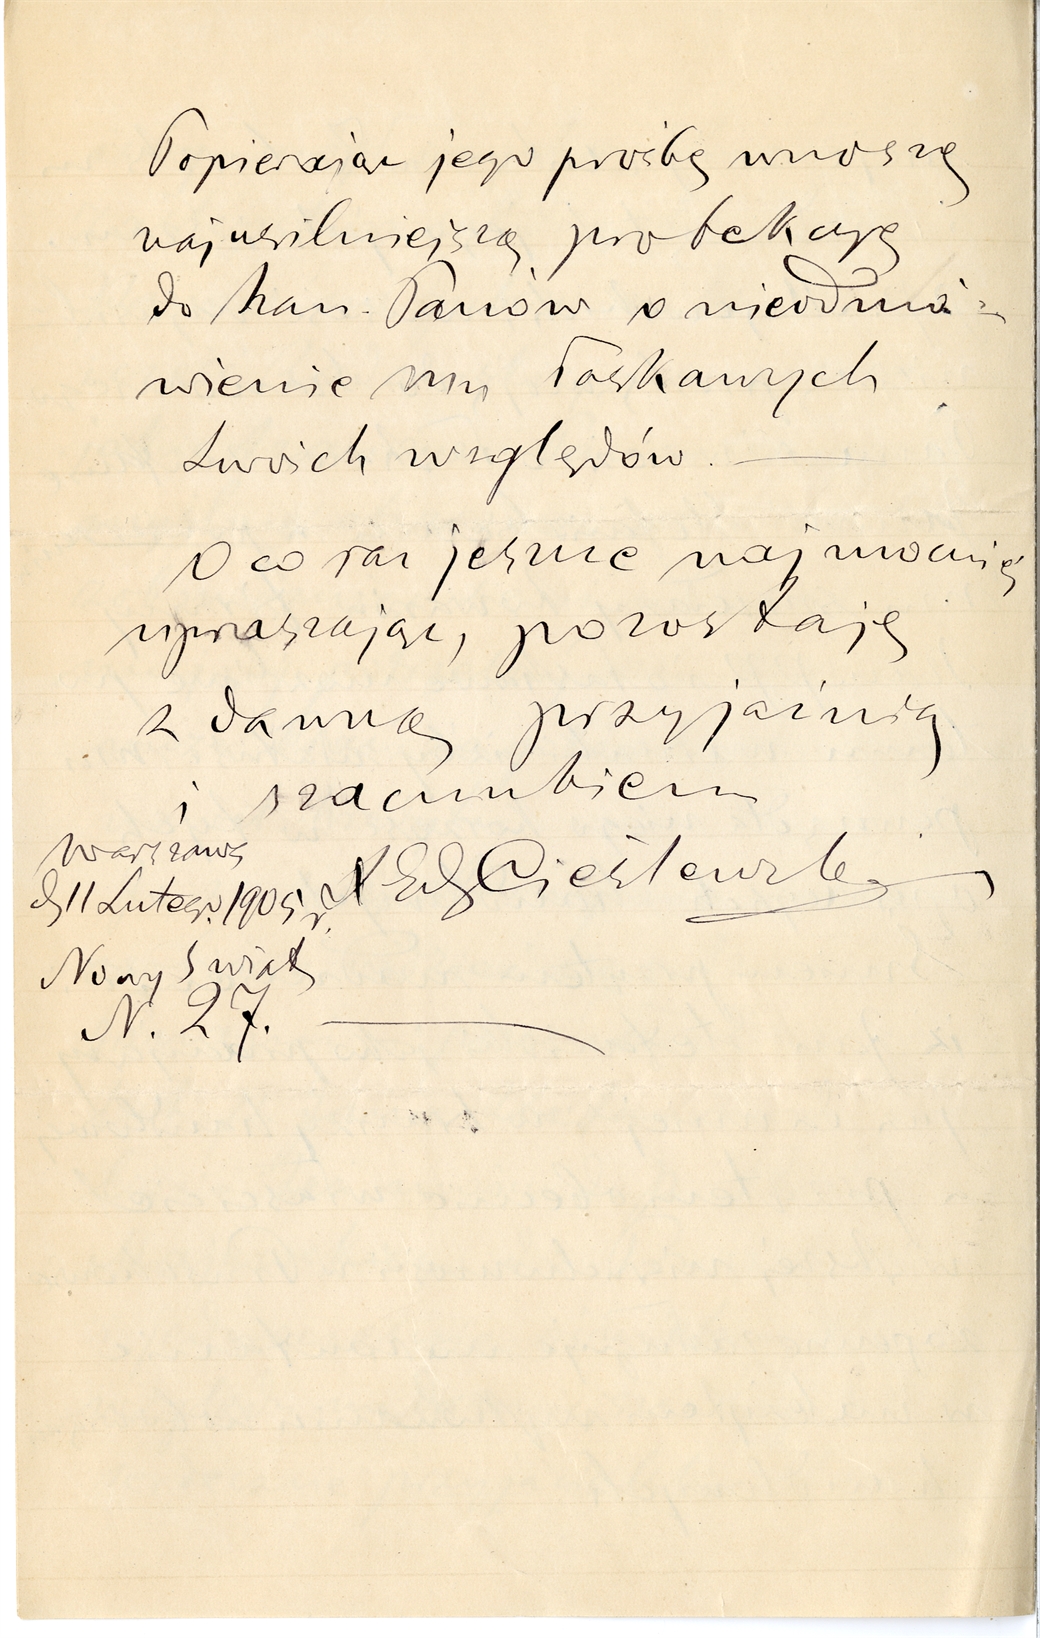 Popierając jego prośbę wnoszę
najusilniejszą protekcyę
do Szan. Panów o nieodmó-
wienie mu łaskawych
Swoich względów. —
O co raz jeszcze najmocniej
upraszając, pozostaję
z dawną przyjaźnią
i szacunkiem
Warszawa
d. 11 Lutego 1905 r.
Cieślewski
Nowy Świat
N. 27. —